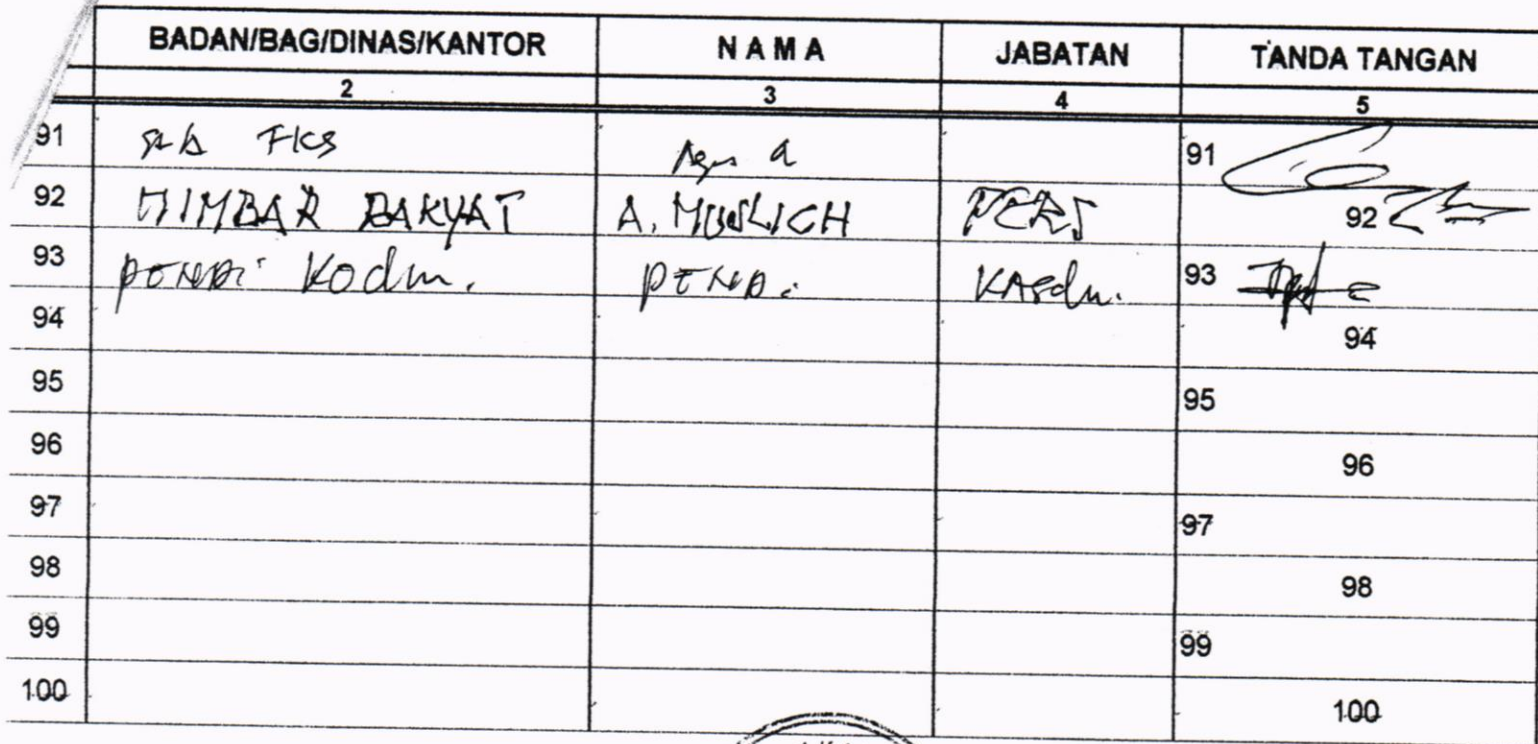 BADAN/BAG/DINAS/KANTOR NAMA JABATAN TANDA TANGAN
2 3 4 5
91 FKS 91
92 MIMBAR RAKYAT A. MUSLICH PERS 92
93 Kodim. 93
94 94
95 95
96 96
97 97
98 98
99 99
100 100